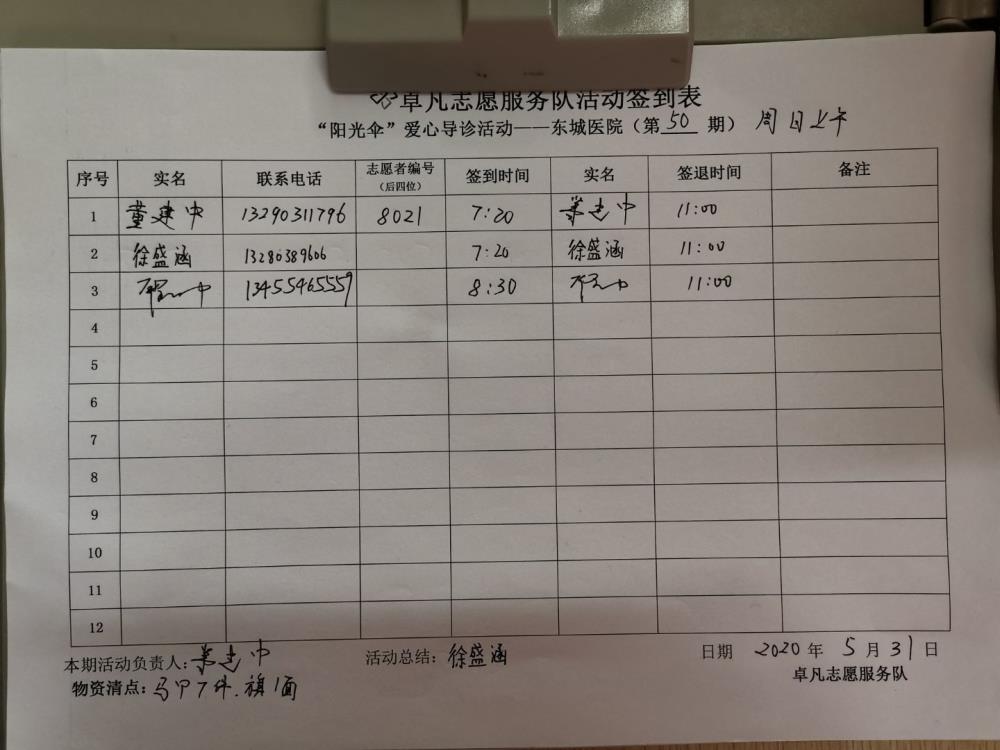 卓凡志愿服务队活动签到表
“阳光伞”爱心导诊活动——东城医院（第50期） 周日上午
序号 实名 联系电话 志愿者编号（后四位） 签到时间 实名 签退时间 备注
1 董建中 13290311796 8021 7:20 董建中 11:00
2 徐盛涵 13280389606 7:20 徐盛涵 11:00
3 13455465559 8:30 11:00
4
5
6
7
8
9
10
11
12
本期活动负责人：董建中 活动总结：徐盛涵 日期 2020年5月31日
物资清点：马甲7件.旗1面 卓凡志愿服务队